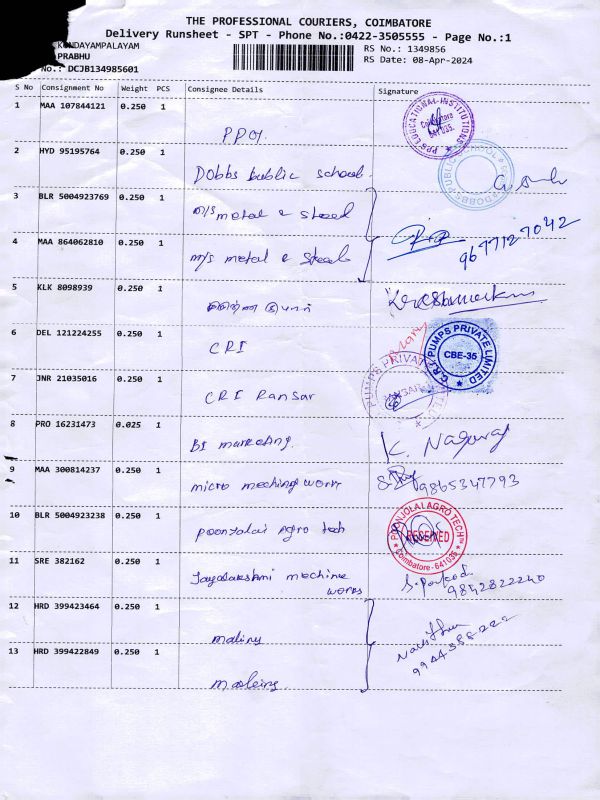 THE PROFESSIONAL COURIERS, COIMBATORE
Delivery Runsheet - SPT - Phone No.:0422-3505555 - Page No.:1
KONDAYAMPALAYAM
RS No.: 1349856
PRABHU
RS Date: 08-Apr-2024
No.: DCJB134985601
S No Consignment No Weight PCS Consignee Details Signature
1 MAA 107844121 0.250 1
PPS EDUCATIONAL INSTITUTIONS Coimbatore 641 035.
2 HYD 95195764 0.250 1
Dobbs public school.
DOBBS PUBLIC
3 BLR 5004923769 0.250 1
m/s metal & steel
9677127042
4 MAA 864062810 0.250 1
m/s metal & steel
5 KLK 8098939 0.250 1
6 DEL 121224255 0.250 1
CRI
C.R.I. PUMPS PRIVATE LIMITED CBE-35
7 JNR 21035016 0.250 1
CRI Ransar
PUMPS PRIVATE
8 PRO 16231473 0.025 1
BI marketing.
K. Nagaraj
9 MAA 300814237 0.250 1
micro meching works
9865347793
10 BLR 5004923238 0.250 1
poonjolai Agro tech
POONJOLAI AGRO TECH RECEIVED Coimbatore - 641035
11 SRE 382162 0.250 1
Jayalakshmi machine
works
9842822240
12 HRD 399423464 0.250 1
9944388222
13 HRD 399422849 0.250 1